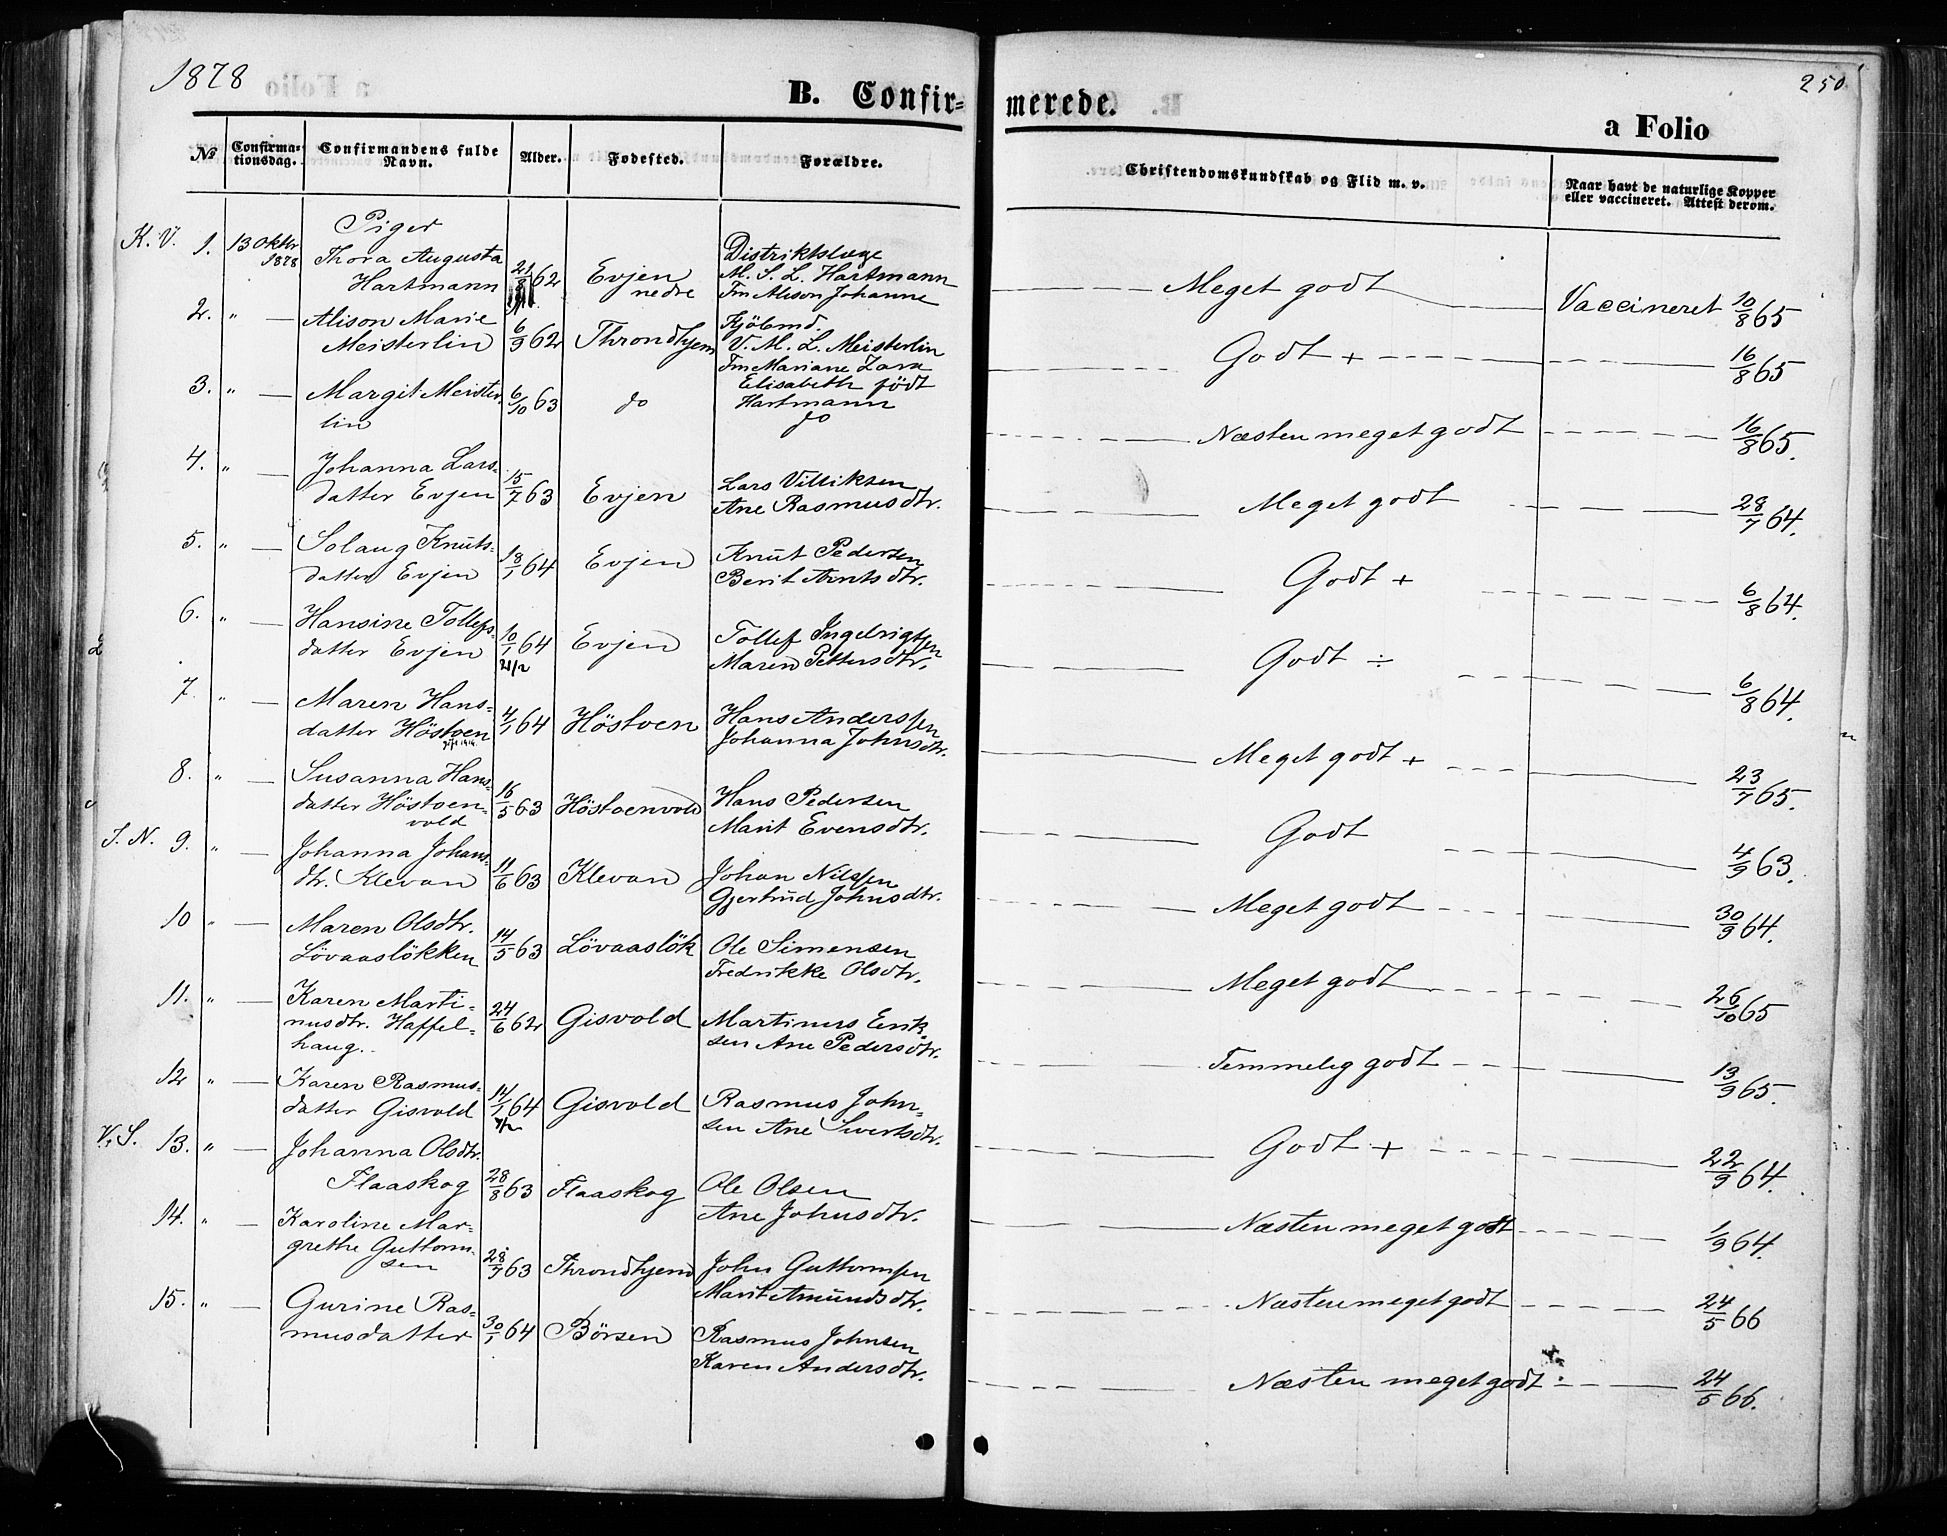 1878
B. Confir-
merede.
250
a Folio
No
Confirma-
tionsdag.
Confirmandens fulde
Navn.
Alder.
Fødested.
Forældre.
Christendomskundskab og Flid m. v.
Naar havt de naturlige Kopper
eller vaccineret. Attest derom.
Piger
K. V. 1. 13 Oktbr 1878
Thora Augusta
Hartmann
21/8 62
Evjen
nedre
Distriktslæge
M. S. L. Hartmann
Alison Johanne
Meget godt
Vaccineret 10/8 65
2. " —
Alison Marie
Meisterlin
6/9 62
Throndhjem
Kjöbmd.
V. M. L. Meisterlin
Mariane Lara
Elisabeth födt
Hartmann
Godt +
16/8 65
3. " —
Margit Meister-
lin
6/10 63
do
do
Næsten meget godt
16/8 65.
4. " —
Johanna Lars-
datter Evjen
15/7 63
Evjen
Lars Villiksen
Ane Rasmusdtr.
Meget godt
28/7 64.
5. " —
Solaug Knuts-
datter Evjen
18/1 64
Evjen
Knut Pedersen
Berit Arntsdtr.
Godt +
6/8 64.
6. " —
Hansine Tollefs-
datter Evjen
10/1 64
21/2
Evjen
Tollef Ingebrigtsen
Maren Pettersdtr.
Godt ÷
6/8 64.
7. " —
Maren Hans-
datter Höstoen
4/1 64
Höstoen
Hans Anderssen
Johanna Johnsdtr.
Meget godt +
23/7 65.
8. " —
Susanna Hans-
datter Höstoen-
vold
16/5 63
Höstoenvold
Hans Pedersen
Marit Evensdtr.
Godt
4/9 63.
J. N. 9. " —
Johanna Johans-
dtr. Klevan
11/6 63
Klevan
Johan Nilssen
Gjertrud Johnsdtr.
Meget godt
30/9 64.
10 " —
Maren Olsdtr.
Lövaaslökken
14/5 63
Lövaaslök
Ole Simensen
Fredrikke Olsdtr.
Meget godt
26/10 65
11. " —
Karen Marti-
nusdtr. Haffel-
haug.
24/6 62
Gisvold
Martinus Erik-
sen Ane Pedersdtr.
Temmelig godt
13/9 65.
12 " —
Karen Rasmus-
datter Gisvold
14/1 64
Gisvold
Rasmus John-
sen Ane Sivertsdtr.
Godt +
22/9 64.
V. S. 13. " —
Johanna Olsdtr.
Flaaskog
28/8 63
Flaaskog
Ole Olsen
Ane Johnsdtr.
Næsten meget godt
1/9 64.
14. " —
Karoline Mar-
grethe Guttorm-
sen
28/7 63
Throndhjem
John Guttormsen
Marit Amundsdtr.
Næsten meget godt
24/5 66
15. " —
Gurine Ras-
musdatter
30/1 64
Börsen
Rasmus Johnsen
Karen Andersdtr.
Næsten meget godt
24/5 66.